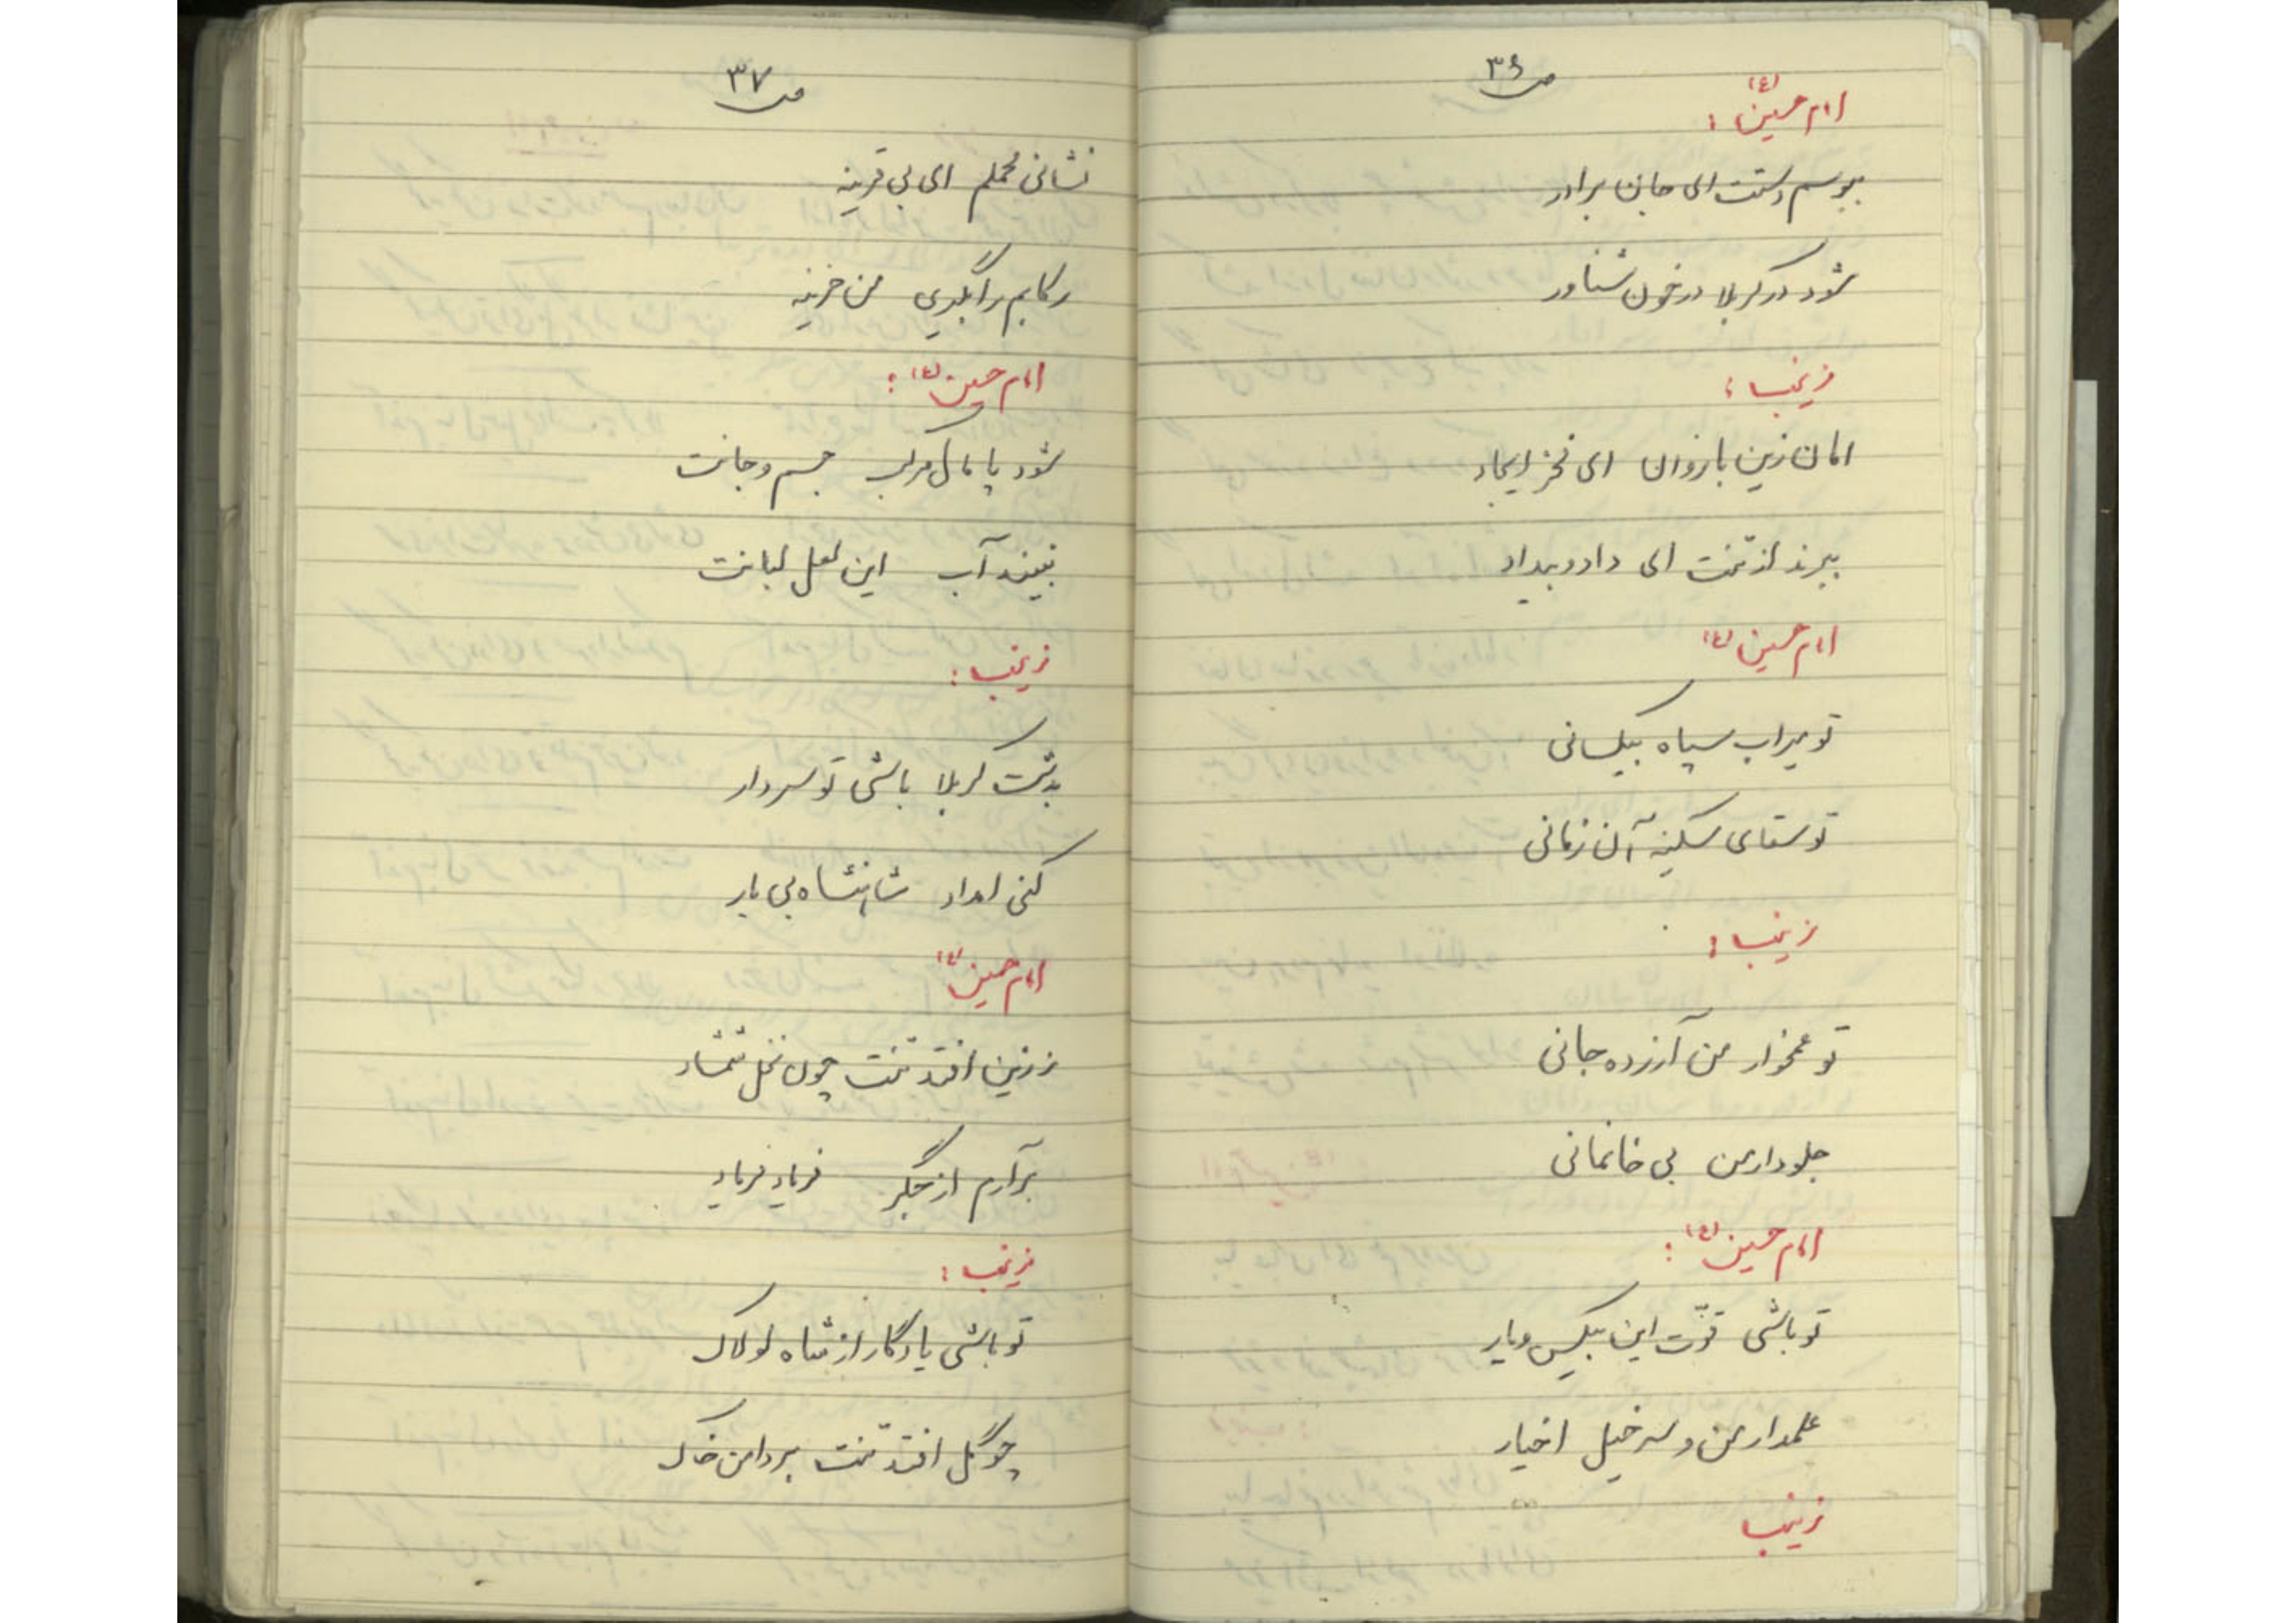 ص ۳۶
امام حسین (ع) :
ببوسم دستت ای جان برادر
شود در کربلا در خون شناور
زینب :
امان زین بازوان ای فخر ایجاد
ببرند از تنت ای داد و بیداد
امام حسین (ع)
تو میراب سپاه بیکسانی
تو سقای سکینه آن زمانی
زینب :
تو غمخوار من آزرده جانی
جلودار من بی خانمانی
امام حسین (ع) :
تو باشی قوّت این بیکس و یار
علمدار من و سر خیل اخیار
زینب
ص ۳۷
نشانی محملم ای بی قرینه
رکابم را بگیری من حزینه
امام حسین (ع) :
شود پامال مرکب جسم و جانت
نبیند آب این لعل لبانت
زینب :
بدشت کربلا باشی تو سردار
کنی امداد شاهنشاه بی یار
امام حسین (ع)
ز زین افتد تنت چون نخل شمشاد
برآرم از جگر فریاد فریاد
زینب :
تو باشی یادگار از شاه لولاک
چو گل افتد تنت بر دامن خاک